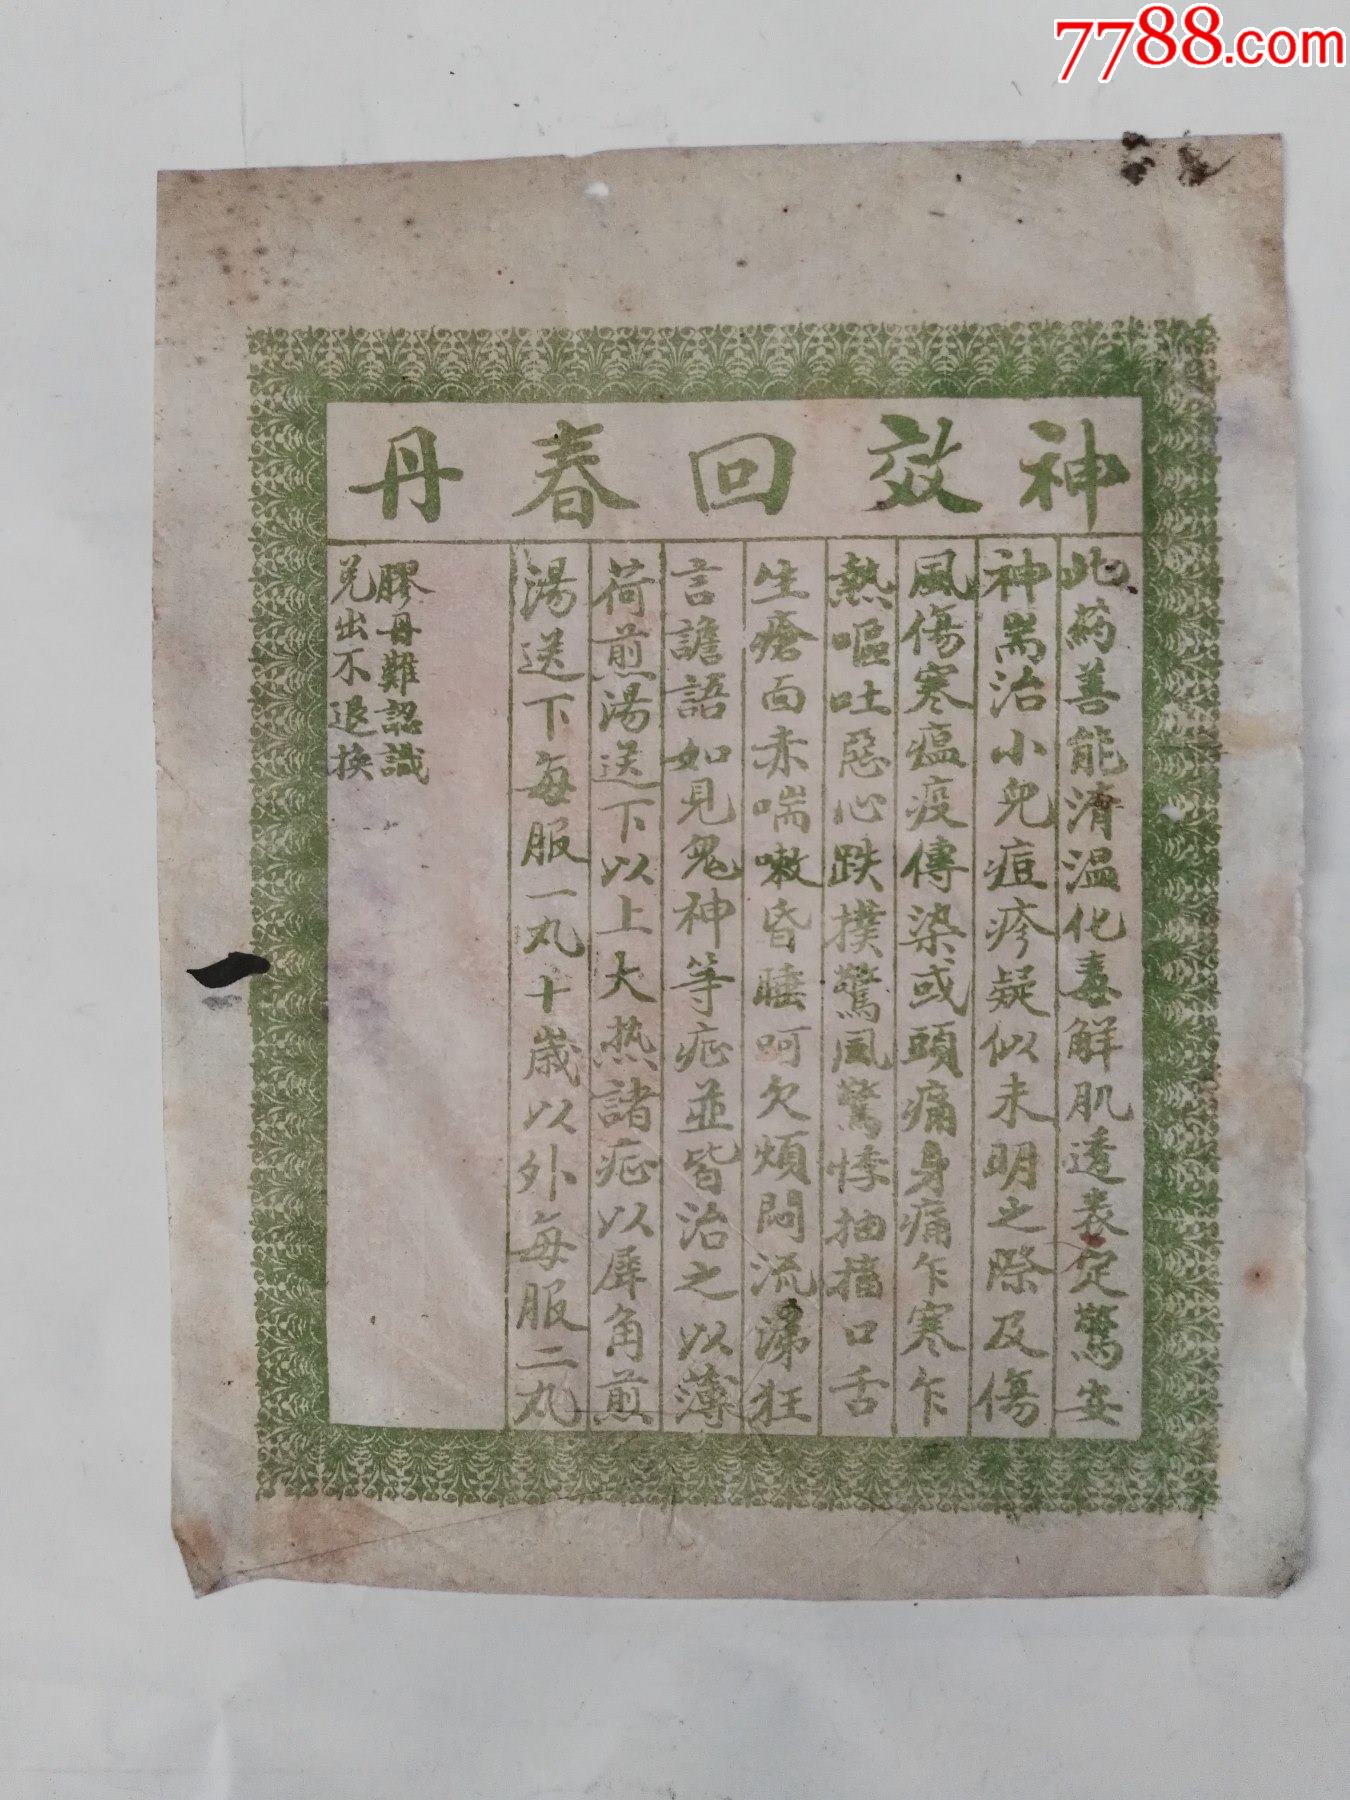 7788.com
神效回春丹
此药善能清温化毒解肌透表定驚安
神耑治小兒痘疹疑似未明之際及傷
風傷寒瘟疫傳染或頭痛身痛乍寒乍
熱嘔吐惡心跌撲驚風驚悸抽搐口舌
生瘡面赤喘嗽昏睡呵欠煩悶流涕狂
言譫語如見鬼神等症並皆治之以薄
荷煎湯送下以上大热諸症以犀角煎
湯送下每服一丸十歲以外每服二丸
膠丹難認識
兑出不退換